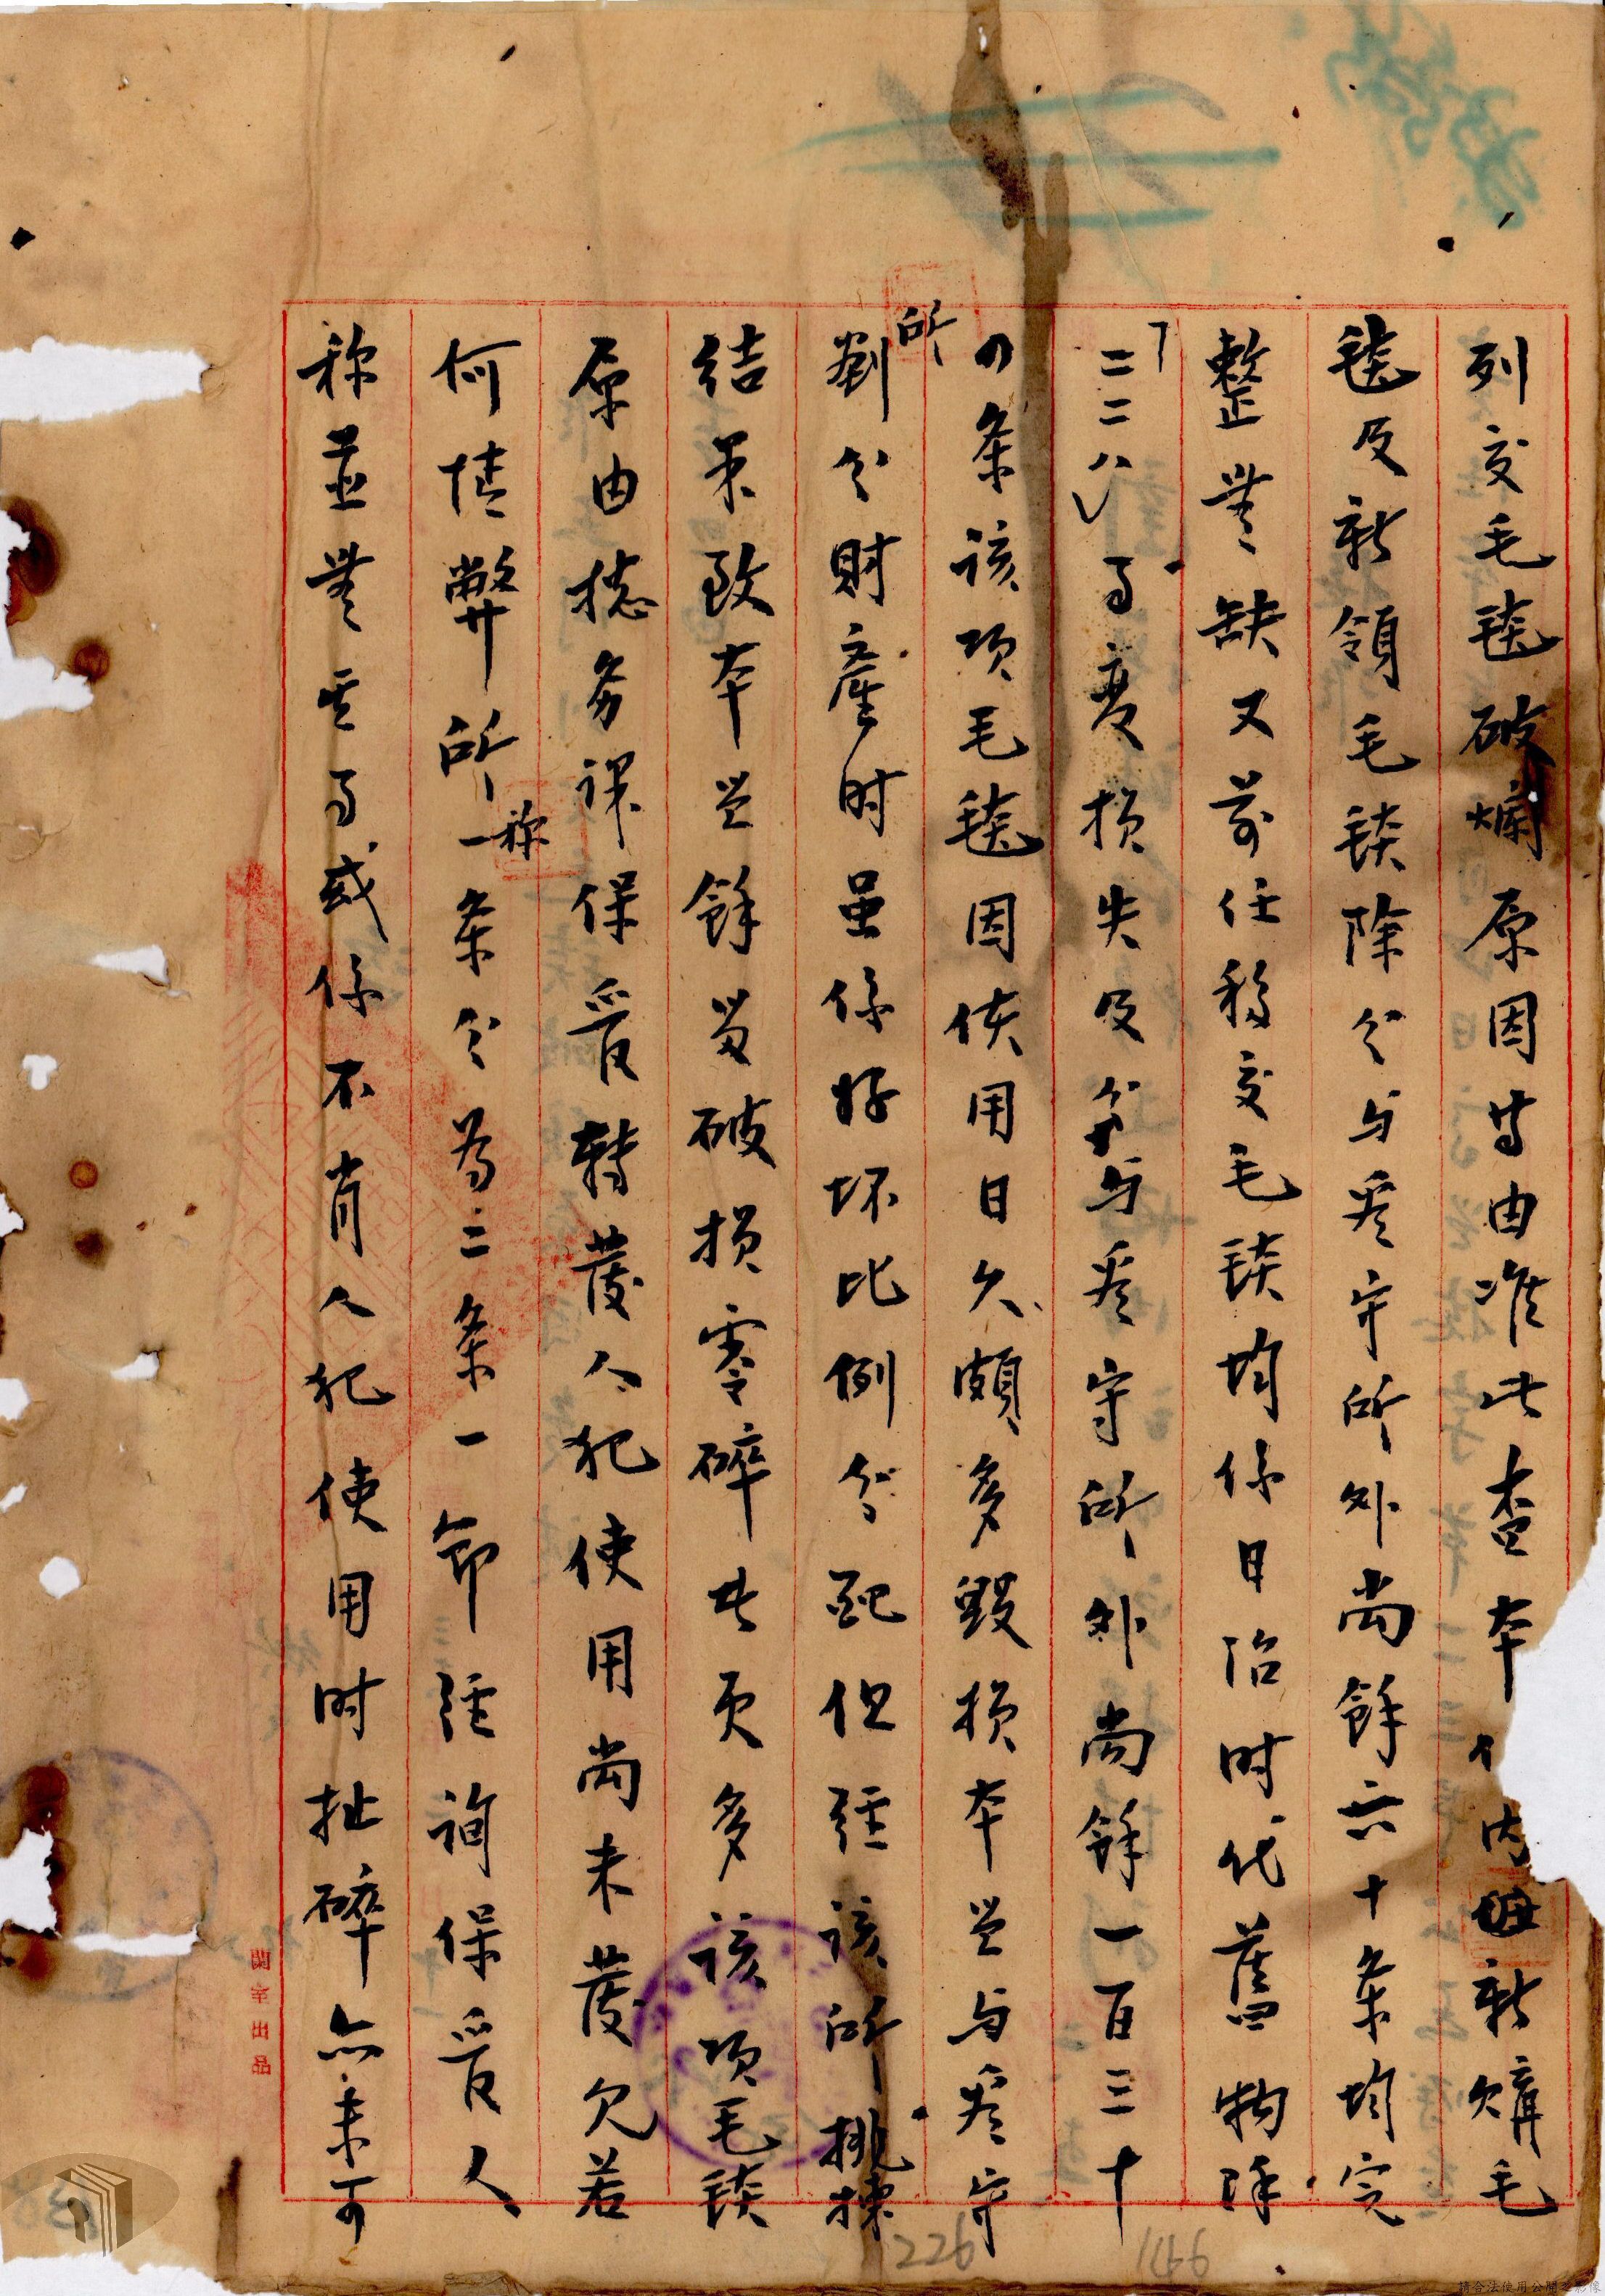 列交毛毯破爛原因等由准此查本 內新購毛
毯及新領毛毯除分与看守所外尚餘六十条均完
整無缺又前任移交毛毯均係日治时代舊物除
「二二八」事变損失及分与看守所外尚餘一百三十
四条該項毛毯因使用日久頗多毀損本監与看守
所劃分財產时虽係好坏比例分配但經該所挑揀
結果致本監餘留破損零碎甚更多該項毛毯
原由總务课保管轉發人犯使用尚未發欠若
何情弊所称一条分為二条一節經詢保管人
称並無其事或係不肖人犯使用时扯碎亦未可
蘭室出品
226
1146